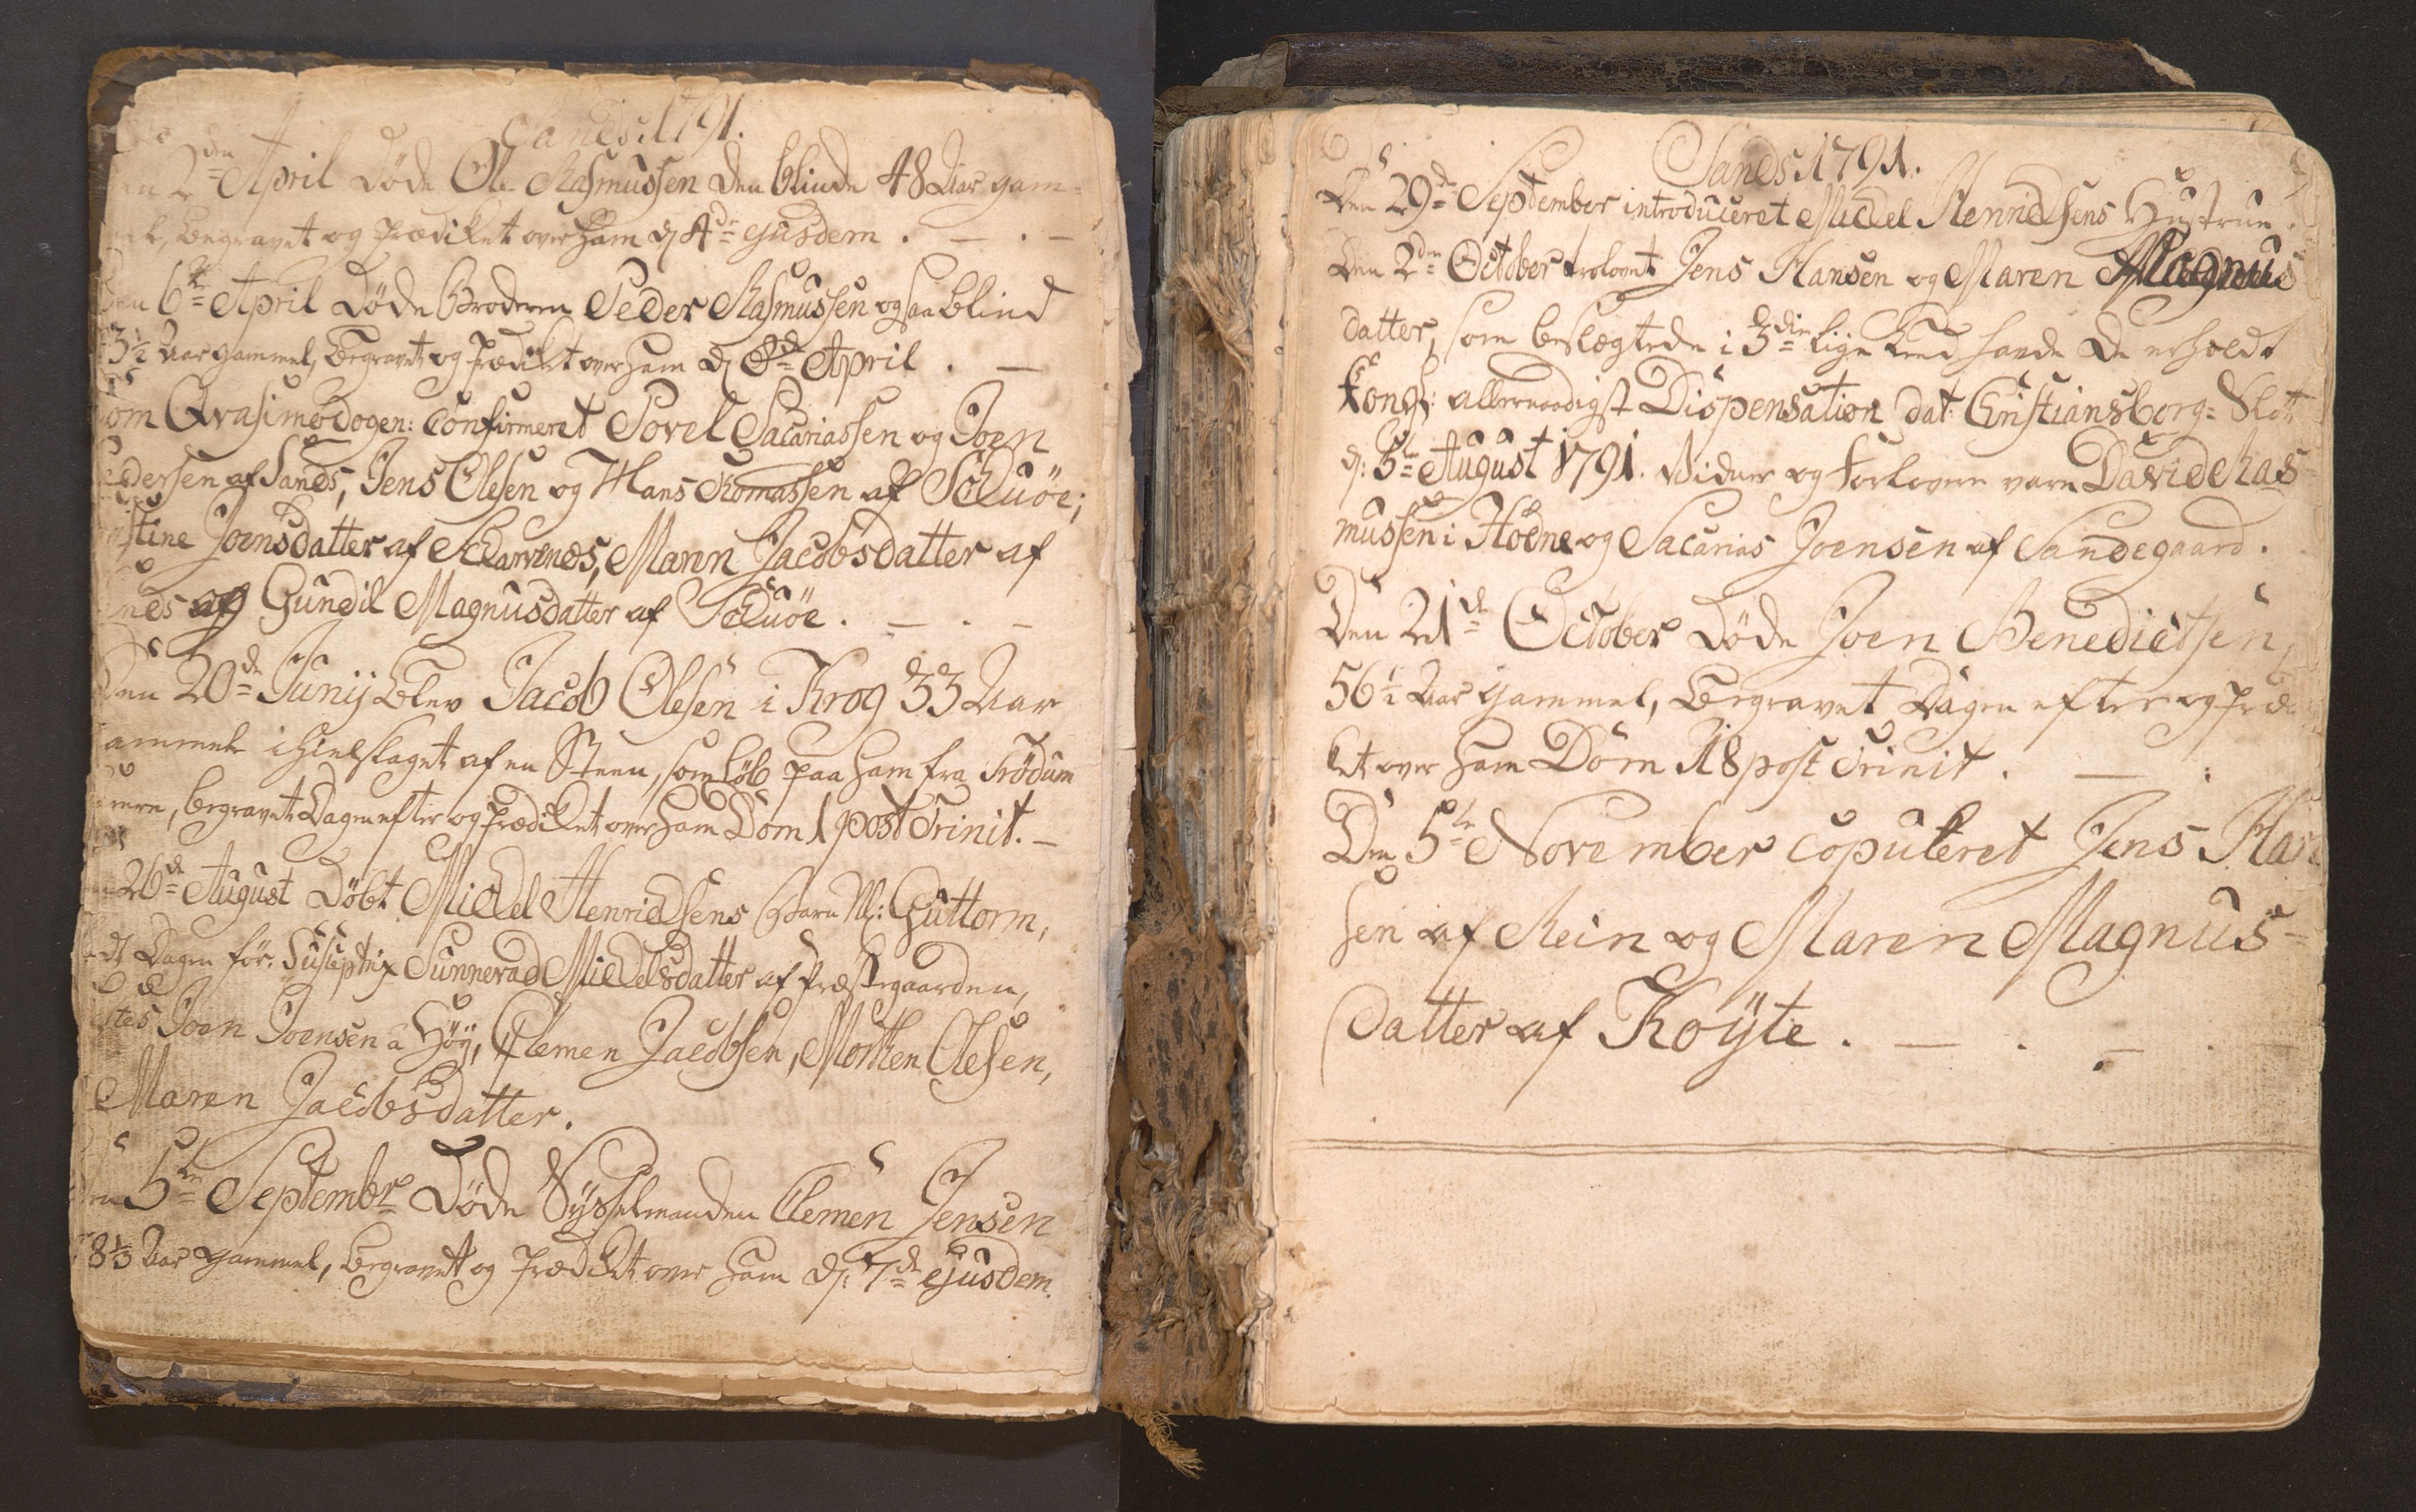 Sands. 1791.
2den April Døde Ole Rasmussen den blinde 48 Aar gam=
begravet og prædiket over ham d 4de ejusdem.
6te April Døde Broderen Peder Rasmussen ogsaa blind
3½ Aar gammel, begravet og prædiket over ham d 8de April.
Dom Qvasimodogen: confirmeret Povel Sacariassen og Joen
Pedersen af Sands, Jens Olesen og Hans Thomassen af Schuöe;
Joensdatter af Scharvenes, Maren Jacobsdatter af
og Gundil Magnusdatter af Schuöe.
Den 20de Junij blev Jacob Olesen i Krog 33 Aar
gammel ihielslaget af en Steen, som løb paa ham fra Trödum
begravet Dagen efter og prædiket over ham Dom 1 post Trinit.
26de August Døbt Michel Henrichsens Barn N: Guttorm,
Dagen för. Susceptrix Sunneva Michelsdatter af Præstegaarden,
Testes Joen Joensen a Höy, Clemen Jacobsen, Morten Olesen,
Maren Jacobsdatter.
5te Septembr Døde Sysselmanden Clemen Jensen
Aar gammel, begravet og prædiket over ham d: 7de ejusdem.
Sands. 1791.
Den 29de September introduceret Michel Henrichsens Hustrue.
Den 2den October trolovet Jens Hansen og Maren Magnus
datter, som beslægtede i 3die lige Leed havde de erholdt
Kongl: allernaadigst Dispensation dat: Christiansborg=Slott
d: 5te August 1791. Vidner og Forlovere vare David Ras=
mussen i Hödne og Sacarias Joensen af Sandegaard.
Den 21de October Døde Joen Benedictsen,
56½ Aar gammel, begravet Dagen efter og præ
ket over ham Dom 18 post Trinit.
Den 5te November copuleret Jens Han
sen af Rein og Maren Magnus=
Datter af Köyte.